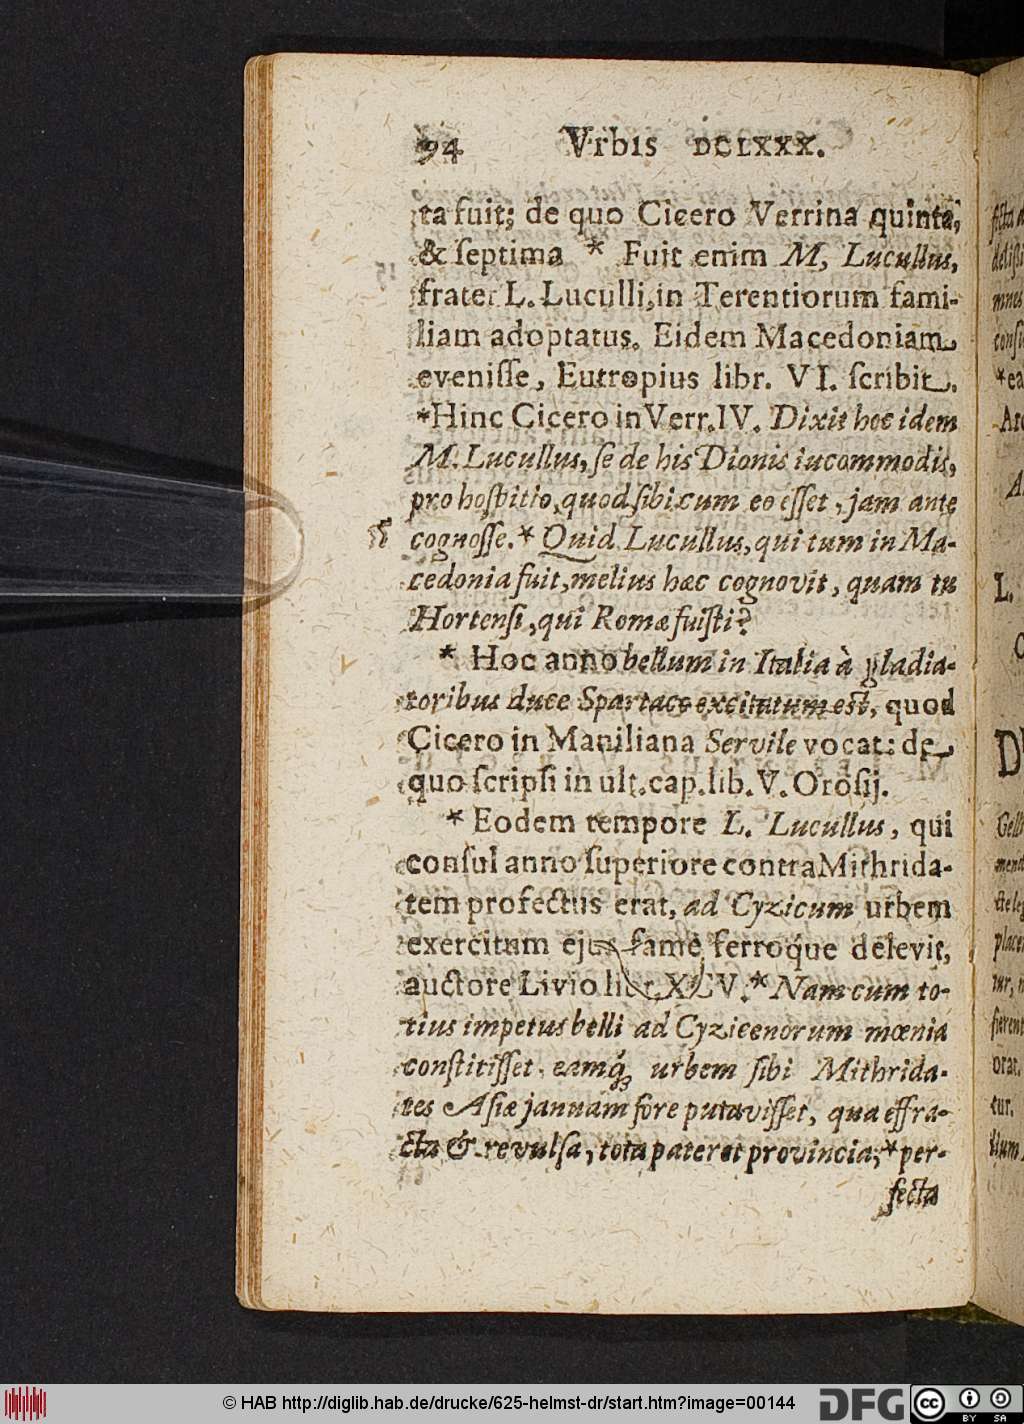 94 Vrbis DCLXXX.
ta fuit; de quo Cicero Verrina quinta,
& ſeptima * Fuit enim M, Lucullus,
frater L. Luculli, in Terentiorum fami-
liam adoptatus. Eidem Macedoniam
eveniſſe, Eutropius libr. VI. ſcribit.
*Hinc Cicero in Verr. IV. Dixit hoc idem
M. Lucullus, ſe de his Dionis incommodis,
pro hoſpitio, quod ſibi cum eo eſſet, jam ante
cognoſſe.* Quid Lucullus, qui tum in Ma-
cedonia fuit, melius hæc cognovit, quam tu
Hortenſi, qui Romæ fuiſti?
* Hoc anno bellum in Italia à gladia-
toribus duce Spartaco excitatum est, quod
Cicero in Maniliana Servile vocat: de
quo ſcripſi in ult. cap. lib. V. Oroſij.
* Eodem tempore L. Lucullus, qui
conſul anno ſuperiore contra Mithrida-
tem profectus erat, ad Cyzicum urbem
exercitum ejus fame ferroque delevit,
auctore Livio libr. XCV.* Nam cum to-
tius impetus belli ad Cyzicenorum mœnia
conſtitiſſet, eamq́; urbem ſibi Mithrida-
tes Aſiæ januam fore putaviſſet, qua effra-
cta & revulſa, tota pateret provincia; * per-
fecta
© HAB http://diglib.hab.de/drucke/625-helmst-dr/start.htm?image=00144
DFG
cc BY SA